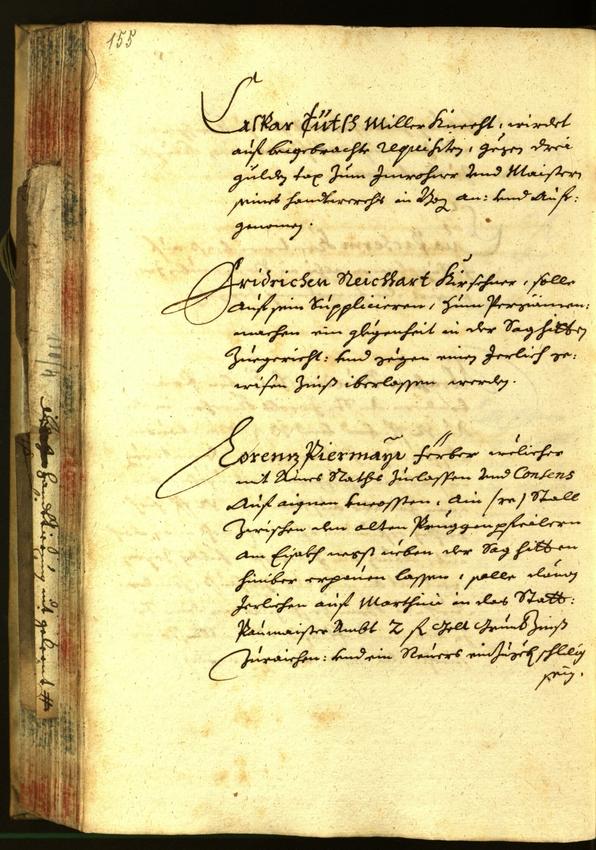 155
Caskar Füt[...] Miller Knecht, würdet
auf beigebrachte requisiten, gegen drei
gulden tax zum Inwohner vnd Maister
seines handtwerchs in Boz an: vnd Auf:
genomen.
Fridrichen Reichhart Kirschner, solle
auf sein Supplicieren, zum Pergamen:
machen ein glegenheit in der Saghitten
Zuegericht: vnd gegen einen Jerlich ge:
wisen Zinß iberlassen werden.
Lorenz Piermayr Färber welicher
mit Aines Raths Zuelassen vnd Consens
Auf aignen Uncossten, ain (re) Stall
Zwischen den alten Pruggenpfeilern
am Eisakh negst neben der Saghitten
hinüber erpauen lassen, solle dauon
Jerlichen auf Marthini in das Statt:
Paumaister Ambt 2 fl Gelt Grundt Zinß
Zuraichen: vnd ein Reuers